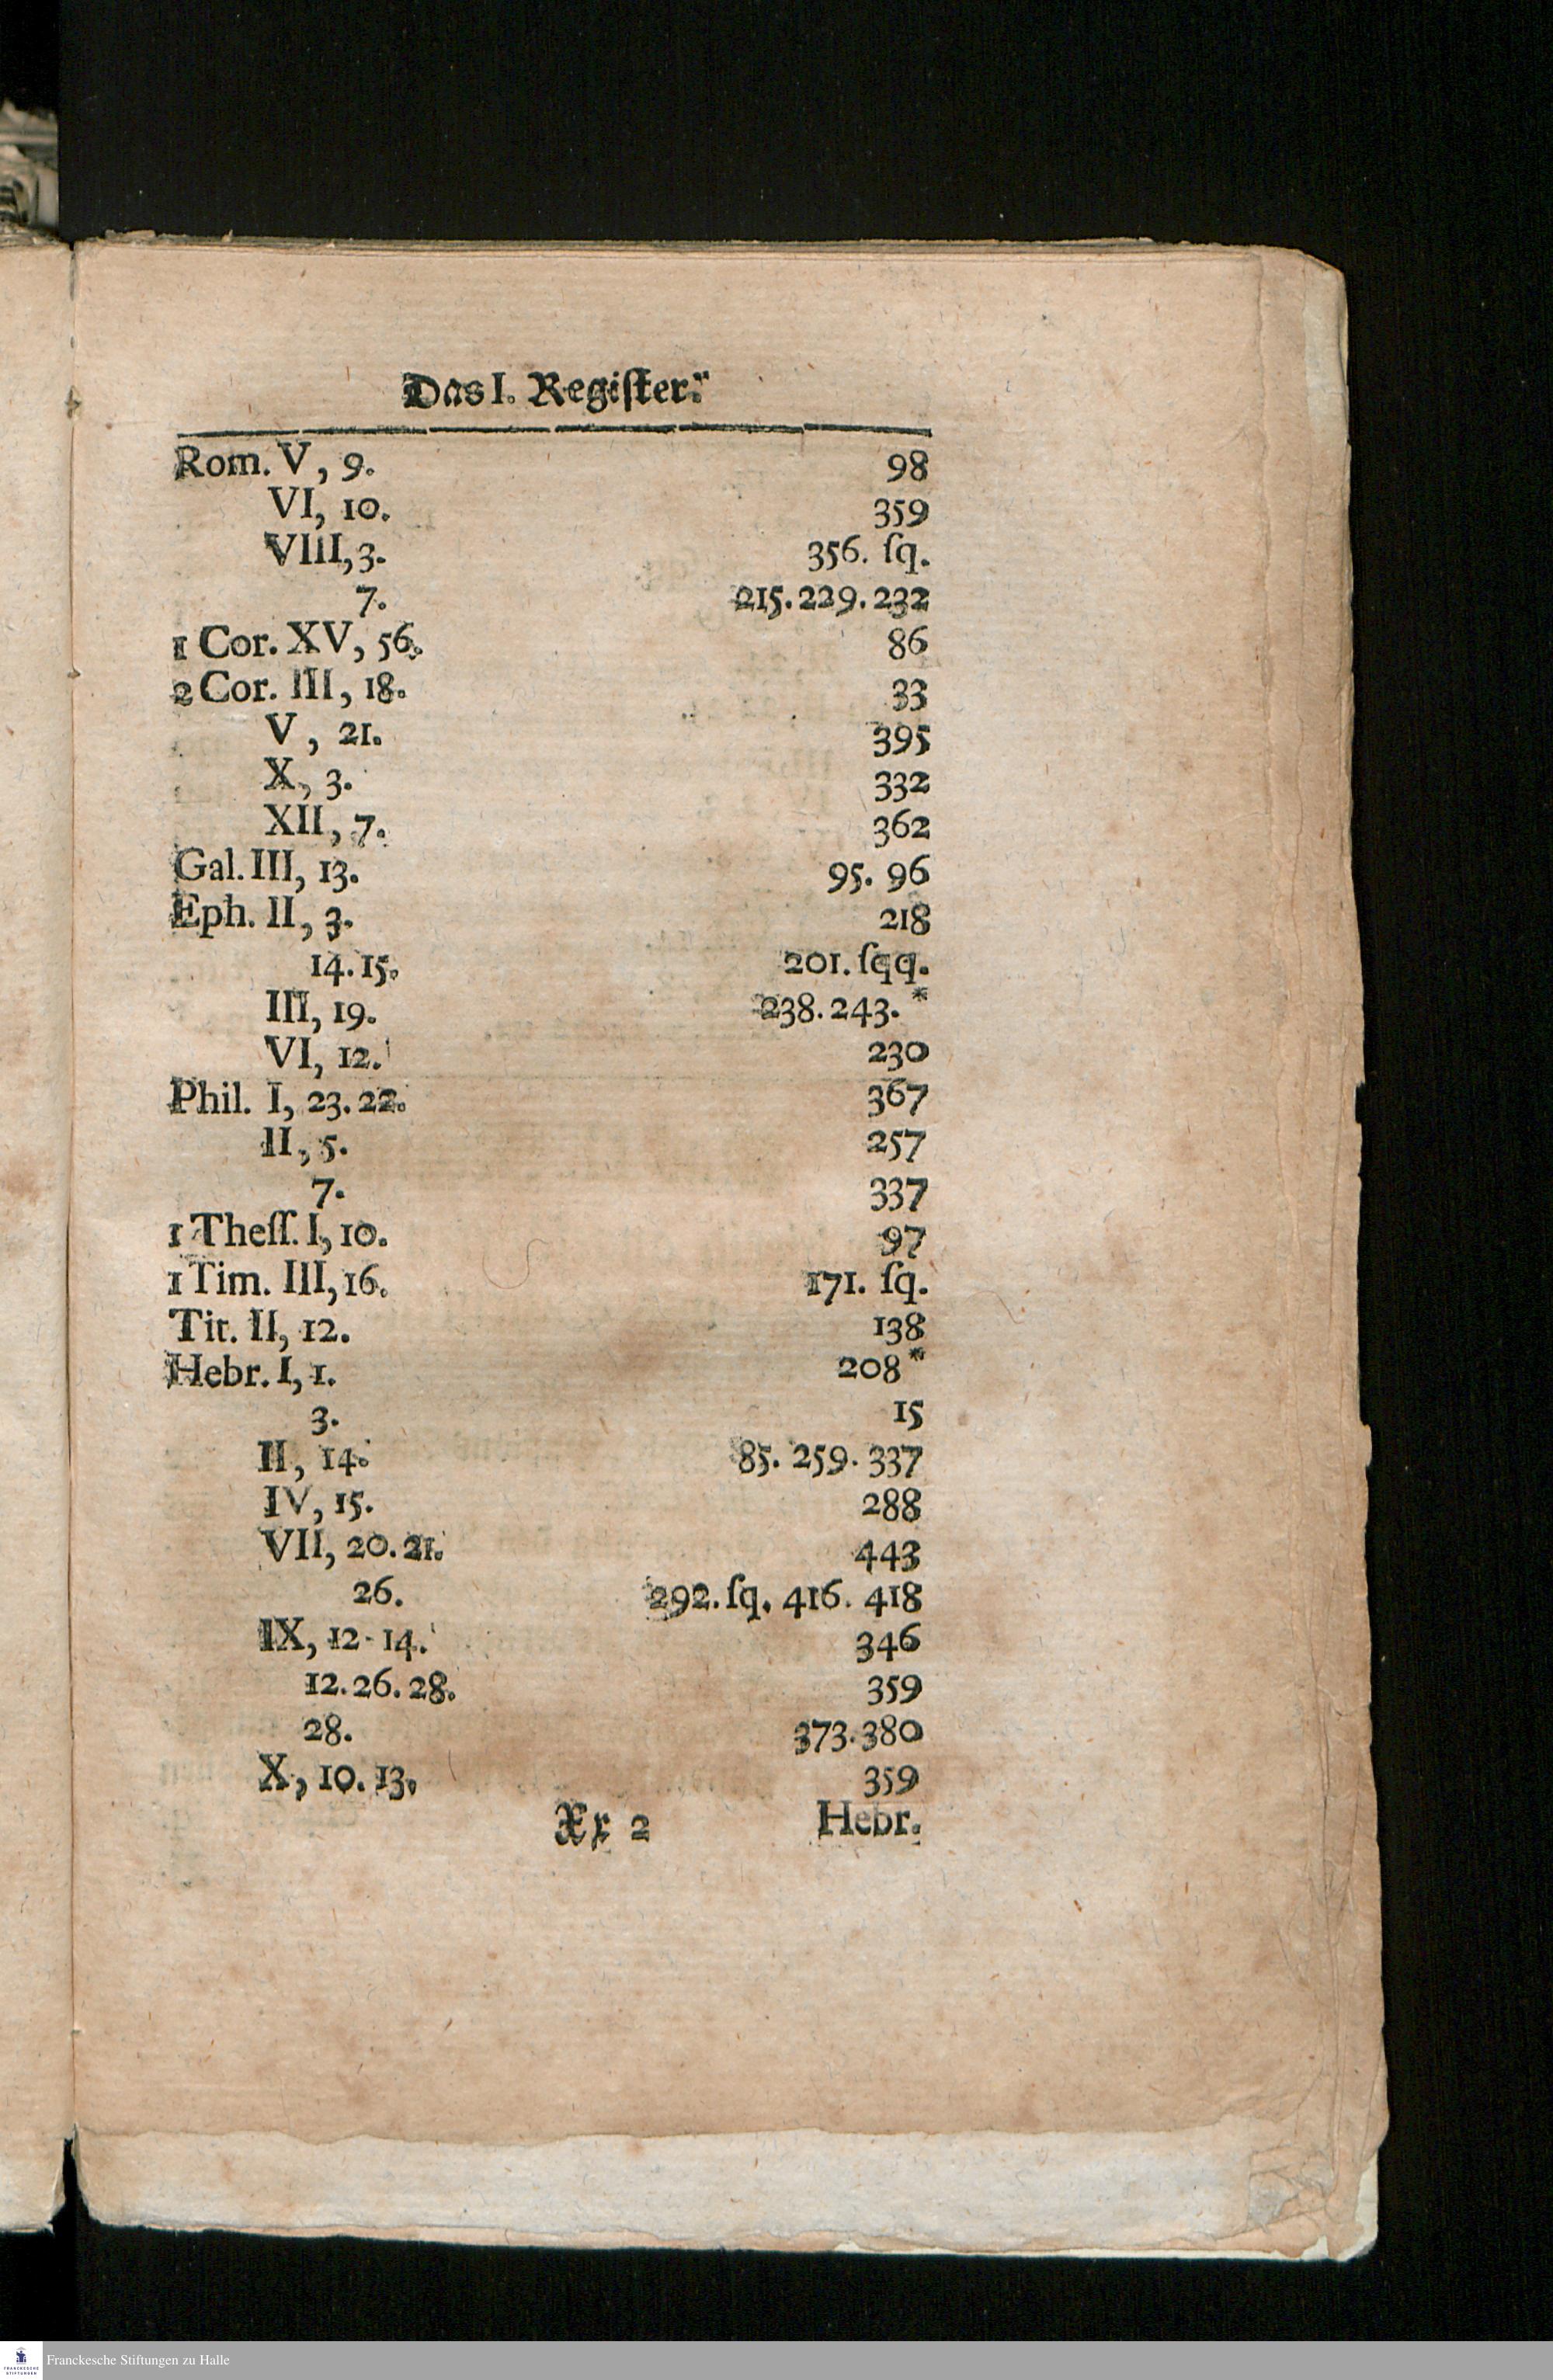 Das I. Regiſter.
Rom. V, 9. 98
VI, 10. 359
VIII, 3. 356. ſq.
7. 215. 229. 232
1 Cor. XV, 56. 86
2 Cor. III, 18. 33
V, 21. 395
X, 3. 332
XII, 7. 362
Gal. III, 13. 95. 96
Eph. II, 3. 218
14. 15. 201. ſqq.
III, 19. 238. 243. *
VI, 12. 230
Phil. I, 23. 22. 367
II, 5. 257
7. 337
1 Theſſ. I, 10. 97
1 Tim. III, 16. 171. ſq.
Tit. II, 12. 138
Hebr. I, 1. 208 *
3. 15
II, 14. 85. 259. 337
IV, 15. 288
VII, 20. 21. 443
26. 292. ſq. 416. 418
IX, 12-14. 346
12. 26. 28. 359
28. 373. 380
X, 10. 13. 359
Xx 2 Hebr.
FRANCKESCHE STIFTUNGEN
Franckesche Stiftungen zu Halle